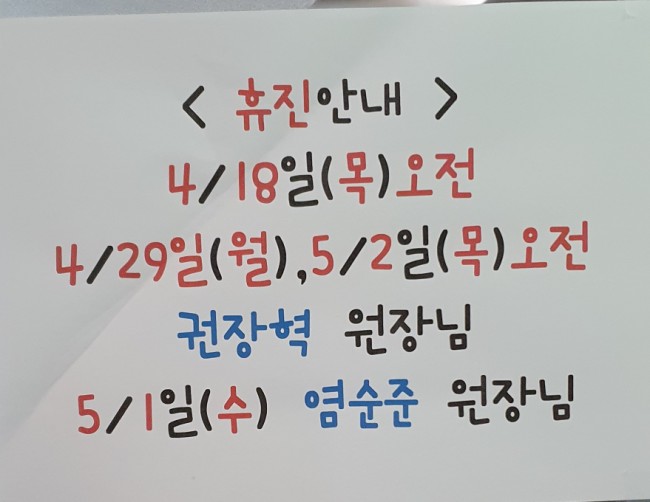 < 휴진안내 >
4/18일(목)오전
4/29일(월),5/2일(목)오전
권장혁 원장님
5/1일(수) 염순준 원장님